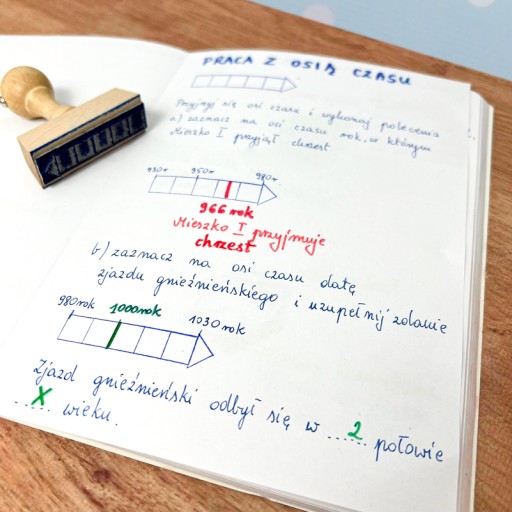 PRACA Z OSIĄ CZASU
Przyjrzyj się osi czasu i wykonaj polecenia
a) zaznacz na osi czasu rok, w którym
Mieszko I przyjął chrzest
930r 950r 980r
966 rok
Mieszko I przyjmuje
chrzest
b) zaznacz na osi czasu datę
zjazdu gnieźnieńskiego i uzupełnij zdanie
980rok 1000rok 1030rok
Zjazd gnieźnieński odbył się w ...2... połowie
...X... wieku.